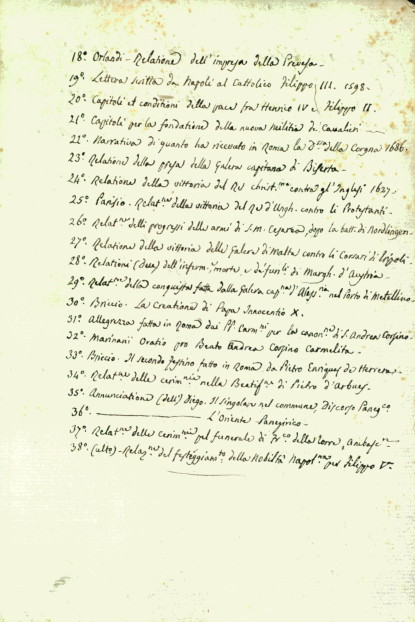 18º. Orlandi - Relatione dell'impresa della Prevesa -
19º. Lettera scritta da Napoli al Cattolico Filippo III. 1598.
20º. Capitoli et conditioni della pace fra Henrico IV e Filippo II.
21º. Capitoli per la fondatione della nuova Militia di Cavalieri
22º. Narrativa di quanto ha ricevuto in Roma la della Corgna 1686.
23º. Relatione della presa della Galera capitana di Biserta -
24º. Relatione della vittoria del Re christ.mo contra gl'Inglesi 1627.
25º. Parisio - Relat.ne della vittoria del Re d'Ungh. contro li Protestanti -
26º. Relat.ne delli progressi delle armi di S. M. Cesarea, dopo la batt. di Nordlingen.
27º. Relatione della vittoria delle Galere di Malta contro li Corsari di Tripoli.
28º. Relationi (due) dell'inferm., morte, e di Margh. d'Austria -
29º. Relat.ne della conquista fatta dalla Galera cap.na d'Aless. nel Porto di Metellino.
30º. Briccio. La Creatione di Papa Innocentio X.
31º. Allegrezze fatte in Roma dai PP. Carm.ni per la canon.ne di S. Andrea Corsino.
32º. Marinani Oratio pro Beato Andrea Corsino Carmelita -
33º. Briccio. Il secondo festino fatto in Roma da Pietro Enriquez de Herrera -
34º. Relat.ne delle cerim.nie nella Beatif.ne di Pietro d'Arbues.
35º. Annunciatione (dell') Diego. Il singolare nel commune, Discorso Paneg.co
36º. ——— L'Oriente Panegirico -
37º. Relat.ne delle cerim.nie pel funerale di Fr.co della Torre, Ambasc.re
38º. (altro) - Relaz.ne del festeggiam.to della Nobiltà Napol.na per Filippo V.